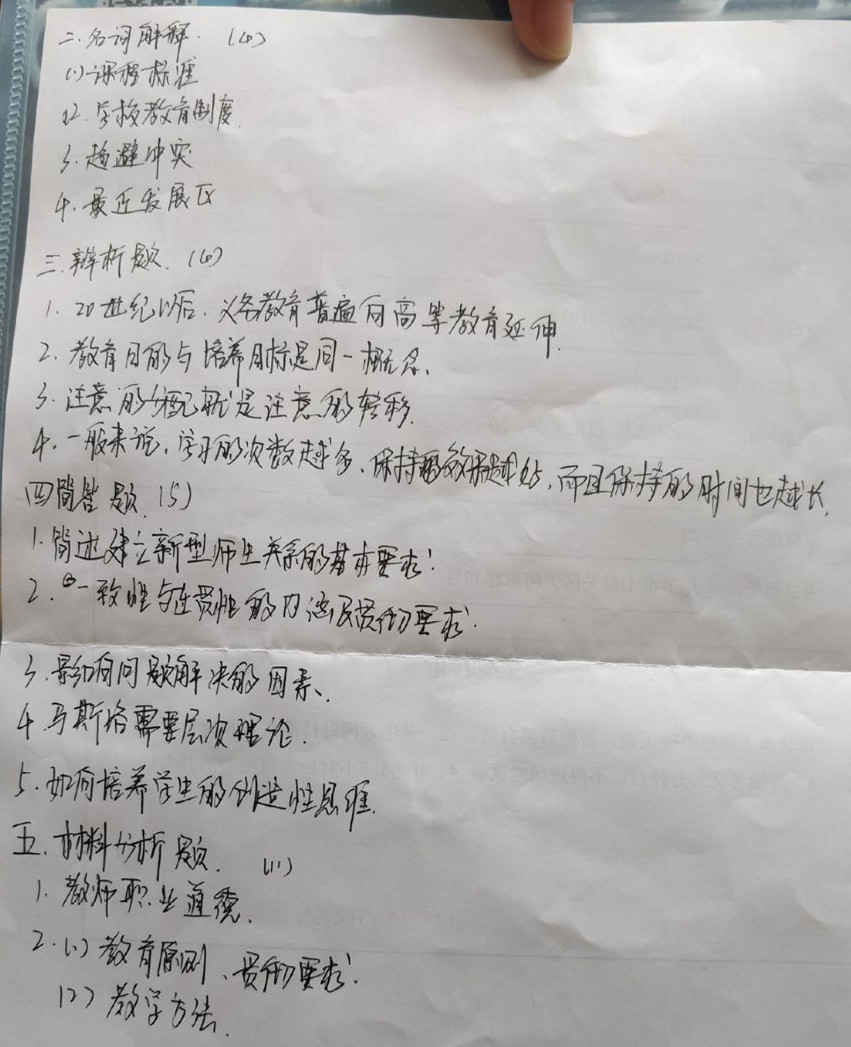 二.名词解释. (4)
(1)课程标准
12.学校教育制度.
3.趋避冲突
4.最近发展区
三.辨析题. (4)
1. 20世纪以后.义务教育普遍向高等教育延伸.
2. 教育目的与培养目标是同一概念、
3.注意的分配就是注意的转移.
4.一般来说,学习的次数越多、保持的效果越好,而且保持的时间也越长.
四简答题.(5)
1.简述建立新型师生关系的基本要求!
2.一致性与连贯性的内涵及贯彻要求.
3.影响问题解决的因素、
4.马斯洛需要层次理论.
5.如何培养学生的创造性思维.
五.材料分析题. (11)
1.教师职业道德.
2.(1)教育原则、贯彻要求.
(2)教学方法.